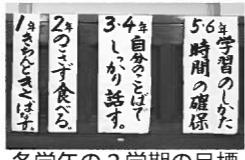 1年きちんときく
はなす。
2年のこさず食べる。
3・4年
自分のことばで
しっかり話す。
5・6年
学習のしかた
時間の確保
各学年の2学期の目標